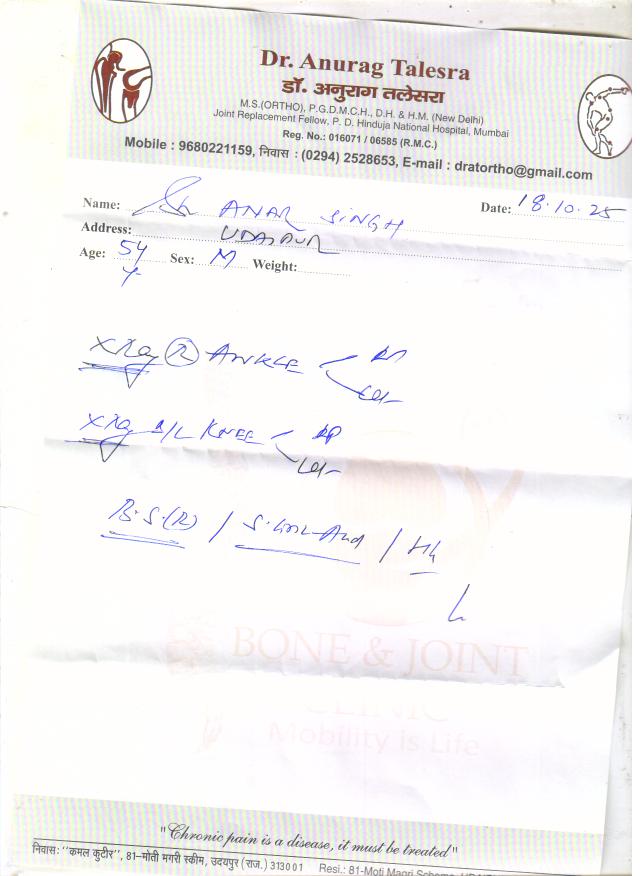 Dr. Anurag Talesra
डॉ. अनुराग तलेसरा
M.S.(ORTHO), P.G.D.M.C.H., D.H. & H.M. (New Delhi)
Joint Replacement Fellow, P. D. Hinduja National Hospital, Mumbai
Reg. No.: 016071 / 06585 (R.M.C.)
Mobile : 9680221159, निवास : (0294) 2528653, E-mail : dratortho@gmail.com
Name: Sh ANAR SINGH Date: 18.10.25
Address: UDAIPUR
Age: 54 y Sex: M Weight:
XRay (R) ANKLE AP
Lat
XRay B/L KNEE AP
Lat
B.S.(R) / S. Uric Acid / Hb
BONE & JOINT
CLINIC
Mobility is Life
"Chronic pain is a disease, it must be treated"
निवास: "कमल कुटीर", 81-मोती मगरी स्कीम, उदयपुर (राज.) 313001 Resi.: 81-Moti Magri Scheme,